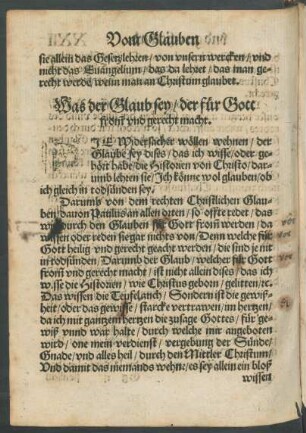 Vom Glauben
sie allein das Gesetz lehren / von unsern wercken / vnd
nicht das Euangelium / das da lehret / das man ge-
recht werde / wenn man an Christum glaubet.
Was der Glaub sey / der für Gott
from vnd gerecht macht.
DIE Widersacher wöllen wehnen / der
Glaube sey dises / das ich wisse / oder ge-
hört habe / die Historien von Christo / dar-
umb lehren sie / Ich könne wol glauben / ob
ich gleich in todsünden sey.
Darumb von dem rechten Christlichen Glau-
ben / dauon Paulus an allen orten / so offt er redet / das
wir durch den Glauben für Gott from werden / da
wissen oder reden sie gar nichts von / Denn welche für
Gott heilig vnd gerecht geacht werden / die sind je nit
in todsünden / Darumb der Glaub / welcher für Gott
from vnd gerecht macht / ist nicht allein dises / das ich
wisse die Historien / wie Christus geborn / gelitten / ꝛc.
Das wissen die Teufel auch / Sondern ist die gewiß-
heit / oder das gewisse / starcke vertrawen / im hertzen /
da ich mit gantzem hertzen die zusage Gottes / für ge-
wiß vnnd war halte / durch welche mir angeboten
wird / one mein verdienst / vergebung der Sünde /
Gnade / vnd alles heil / durch den Mittler Christum /
Vnd damit das niemands wehne / es sey allein ein bloß
wissen